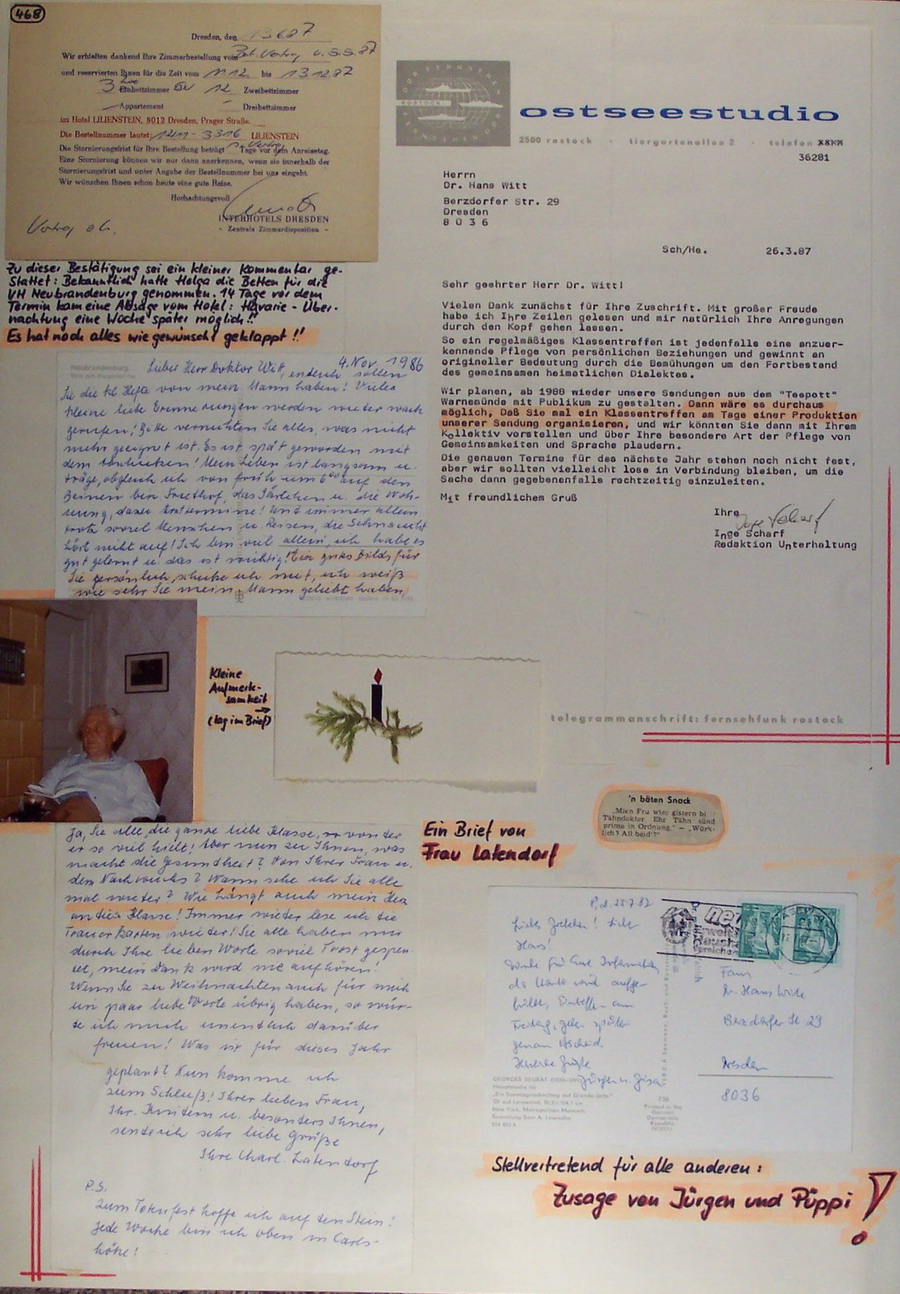 468
Dresden, den 13.6.87
Wir erhielten dankend Ihre Zimmerbestellung vom
und reservierten Ihnen für die Zeit vom 11.12. bis 13.12.87
3 Einbettzimmer 12 Zweibettzimmer
Appartement Dreibettzimmer
im Hotel LILIENSTEIN, 8012 Dresden, Prager Straße.
Die Bestellnummer lautet: LILIENSTEIN
Die Stornierungsfrist für Ihre Bestellung beträgt Tage vor dem Anreisetag.
Eine Stornierung können wir nur dann anerkennen, wenn sie innerhalb der
Stornierungsfrist und unter Angabe der Bestellnummer bei uns eingeht.
Wir wünschen Ihnen schon heute eine gute Reise.
Hochachtungsvoll
INTERHOTELS DRESDEN
- Zentrale Zimmerdisposition -
Zu dieser Bestätigung sei ein kleiner Kommentar ge-
stattet: Bekanntlich hatte Helga die Betten für die
VH Neubrandenburg genommen. 14 Tage vor dem
Termin kam eine Absage vom Hotel: Havarie - Über-
nachtung eine Woche später möglich!!
Es hat noch alles wie gewünscht geklappt!!
Neubrandenburg
4. Nov. 1986
Lieber Herr Doktor Witt, endlich sollen
Sie die Hefte von mein Mann haben! Viele
kleine liebe Erinnerungen werden wieder wach
gerufen! Bitte vernichten Sie alles, was nicht
mehr geeignet ist. Es ist spät geworden mit
dem Mein Leben ist langsam u.
träge, obgleich ich von früh um 6 auf den
Beinen bin Friedhof, das Gärtchen u. die Woh-
nung, dazu Und immer allein
trotz soviel Menschen u. Reisen, die Sehnsucht
hört nicht auf! Ich bin viel allein, ich habe es
gut gelernt u. das ist wichtig! Ein gutes Bild, für
Sie persönlich, schicke ich mit, ich weiß
wie sehr Sie mein Mann geliebt haben
Kleine
Aufmerk-
samkeit
→
(lag im Brief)
Ja, Sie alle, die ganze liebe Klasse, von der
er so viel hielt! Aber nun zu Ihnen, was
macht die Gesundheit? Von Ihrer Frau u.
den Nachwuchs? Wann sehe ich Sie alle
mal wieder? Wie hängt auch mein Herz
an dies Klasse! Immer wieder lese ich die
Trauerkarten wieder! Sie alle haben mir
durch Ihre lieben Worte soviel Trost gespen-
det, mein Dank wird nie aufhören.
Wenn Sie zu Weihnachten auch für mich
ein paar liebe Worte übrig haben, so wür-
de ich mich unendlich darüber
freuen! Was ist für dieses Jahr
geplant? Nun komme ich
zum Schluß! Ihrer lieben Frau,
Ihr. Kindern u. besonders Ihnen,
sende ich sehr liebe Grüße
Ihre Charl. Latendorf
P.S.
Zum Totenfest hoffe ich auf den Stein!
Jede Woche bin ich oben in Carls-
höhe!
ROSTOCK
ostseestudio
2500 rostock · tiergartenallee 2 · telefon
36281
Herrn
Dr. Hans Witt
Berzdorfer Str. 29
Dresden
8 0 3 6
Sch/He. 26.3.87
Sehr geehrter Herr Dr. Witt!
Vielen Dank zunächst für Ihre Zuschrift. Mit großer Freude
habe ich Ihre Zeilen gelesen und mir natürlich Ihre Anregungen
durch den Kopf gehen lassen.
So ein regelmäßiges Klassentreffen ist jedenfalls eine anzuer-
kennende Pflege von persönlichen Beziehungen und gewinnt an
origineller Bedeutung durch die Bemühungen um den Fortbestand
des gemeinsamen heimatlichen Dialektes.
Wir planen, ab 1988 wieder unsere Sendungen aus dem "Teepott"
Warnemünde mit Publikum zu gestalten. Dann wäre es durchaus
möglich, Daß Sie mal ein Klassentreffen am Tage einer Produktion
unserer Sendung organisieren, und wir könnten Sie dann mit Ihrem
Kollektiv vorstellen und über Ihre besondere Art der Pflege von
Gemeinsamkeiten und Sprache plaudern.
Die genauen Termine für des nächste Jahr stehen noch nicht fest,
aber wir sollten vielleicht lose in Verbindung bleiben, um die
Sache dann gegebenenfalls rechtzeitig einzuleiten.
Mit freundlichem Gruß
Ihre
Inge Scharf
Inge Scharf
Redaktion Unterhaltung
telegrammanschrift: fernsehfunk rostock
Ein Brief von
Frau Latendorf
'n bäten Snack
„Mien Fru wier gistern bi
Tähndokter. Ehr Tähn sünd
prima in Ordnung." – „Würk-
lich? All beid'?"
Liebe Hans!
Danke für Eure Information
Freitag, geben später
genauen Bescheid.
Herzliche Grüße
Jürgen u. Gisa
GEORGES SEURAT
„Ein Sonntagnachmittag auf Grande-Jatte"
New York, Metropolitan Museum,
Printed in the
German
Democratic
Republic
Fam.
Dr. Hans Witt
Berzdorfer Str 29
Dresden
8036
Stellvertretend für alle anderen:
Zusage von Jürgen und Püppi!